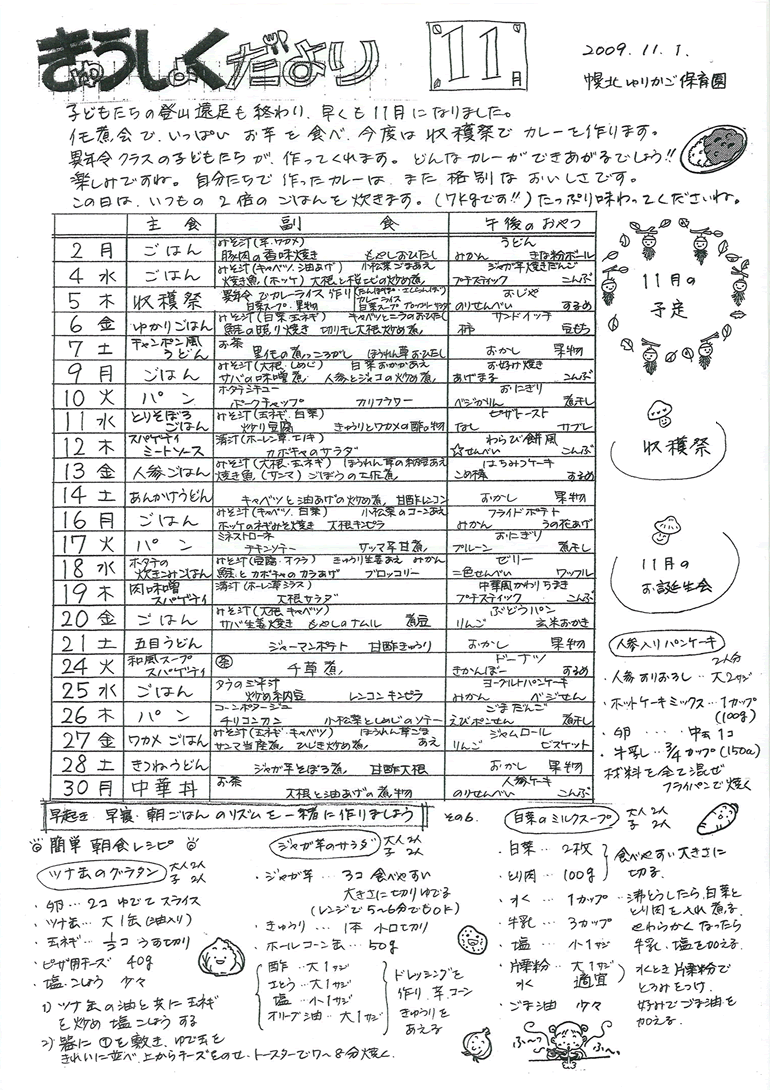 きゅうしょくだより
11月
2009.11.1.
幌北ゆりかご保育園
子どもたちの登山遠足も終わり、早くも11月になりました。
いも煮会で、いっぱいお芋を食べ、今度は収穫祭でカレーを作ります。
異年令クラスの子どもたちが、作ってくれます。どんなカレーができあがるでしょう!!
楽しみですね。自分たちで作ったカレーは、また格別なおいしさです。
この日は、いつもの2倍のごはんを炊きます。(7kgです!!)たっぷり味わってくださいね。
主食 副食 午後のおやつ
2 月 ごはん みそ汁(芋・ワカメ) 豚肉の香味焼き もやしおひたし うどん みかん きな粉ボール
4 水 ごはん みそ汁(キャベツ、油あげ) 小松菜ごまあえ 焼き魚(ホッケ) ジャガ芋焼きだんご プチスティック こんぶ
5 木 収穫祭 異年令でカレーライス作り カレーライス 白菜スープ おじや のりせんべい するめ
6 金 ゆかりごはん みそ汁(白菜・玉ネギ) キャベツとニラのおひたし 鮭の照り焼き 切り干し大根炒め煮 サンドイッチ 柿 豆もち
7 土 チャンポン風うどん お茶 里芋の煮っころがし ほうれん草おひたし おかし 果物
9 月 ごはん みそ汁(大根・しめじ) 白菜おかかあえ サバの味噌煮 人参とジャコの炒め煮 お好み焼き あげまる こんぶ
10 火 パン ホタテシチュー ポークチャップ カリフラワー おにぎり ベジかりん 煮干し
11 水 とりそぼろごはん みそ汁(玉ネギ・白菜) 炒り豆腐 きゅうりとワカメの酢の物 ピザトースト なし サブレ
12 木 スパゲティミートソース 清汁(ホーレン草・エノキ) カボチャのサラダ わらび餅風 ☆せんべい こんぶ
13 金 人参ごはん みそ汁(大根・玉ネギ) ほうれん草の納豆あえ 焼き魚(サンマ) ごぼうの土佐煮 はちみつケーキ こめ棒 するめ
14 土 あんかけうどん キャベツと油あげの炒め煮 甘酢レンコン おかし 果物
16 月 ごはん みそ汁(キャベツ、白菜) 小松菜のコーンあえ ホッケのネギみそ焼き 大根キンピラ フライドポテト みかん うの花あげ
17 火 パン ミネストローネ チキンソテー サツマ芋甘煮 おにぎり プルーン 煮干し
18 水 ホタテの炊きこみごはん みそ汁(豆腐・オクラ) きゅうり生姜あえ みかん 鮭とカボチャのカラあげ ブロッコリー ゼリー 二色せんべい ワッフル
19 木 肉味噌スパゲティ 清汁(ホーレン草・シラス) 大根サラダ 中華風かわりちまき プチスティック こんぶ
20 金 ごはん みそ汁(大根、キャベツ) サバ生姜焼き もやしのナムル 煮豆 ぶどうパン りんご 玄米おかき
21 土 五目うどん ジャーマンポテト 甘酢きゅうり おかし 果物
24 火 和風スープスパゲティ 茶 千草煮 ドーナツ きかんぼー するめ
25 水 ごはん タラの三平汁 炒め納豆 レンコンキンピラ ヨーグルトパンケーキ みかん ベジせん
26 木 パン コーンポタージュ チリコンカン 小松菜としめじのソテー ごまだんご えびポンせん 煮干し
27 金 ワカメごはん みそ汁(玉ネギ・キャベツ) ほうれん草ごまあえ サンマ当座煮 ひじき炒め煮 ジャムロール りんご ビスケット
28 土 きつねうどん ジャガ芋そぼろ煮 甘酢大根 おかし 果物
30 月 中華丼 お茶 大根と油あげの煮物 人参ケーキ のりせんべい こんぶ
11月の
予定
収穫祭
11月の
お誕生会
人参入りパンケーキ
2人分
・人参すりおろし…大2サジ
・ホットケーキミックス…1カップ
(100g)
・卵…中玉1コ
・牛乳…3/4カップ(150cc)
材料を全て混ぜ
フライパンで焼く
早起き 早寝・朝ごはんのリズムを一緒に作りましょう その6.
簡単 朝食レシピ
ツナ缶のグラタン 大人2人 子2人
・卵…2コ ゆでてスライス
・ツナ缶…大1缶(油入り)
・玉ネギ…1/2コ うす切り
・ピザ用チーズ 40g
・塩・こしょう 少々
1)ツナ缶の油と共に玉ネギ
を炒め 塩こしょうする
2)器に①を敷き、ゆで玉を
きれいに並べ、上からチーズをのせ、トースターで7〜8分焼く。
ジャガ芋のサラダ 大人2人 子2人
・ジャガ芋…3コ 食べやすい
大きさに切りゆでる
(レンジで5〜6分でもOK)
・きゅうり…1本 小口切り
・ホールコーン缶…50g
酢…大1サジ
さとう…大1サジ
塩…小1サジ
オリーブ油…大1サジ
ドレッシングを
作り、芋、コーン
きゅうりを
あえる
白菜のミルクスープ 大人2人 子2人
・白菜…2枚
・とり肉…100g
食べやすい大きさに
切る。
・水…1カップ
・牛乳…3カップ
・塩…小1サジ
沸とうしたら、白菜と
とり肉を入れ煮る
やわらかくなったら
牛乳、塩を加える。
・片栗粉…大1サジ
・水…適宜
水とき片栗粉で
とろみをつけ、
・ごま油 少々
好みでごま油を
加える。
ふ〜っ
ふ〜っ